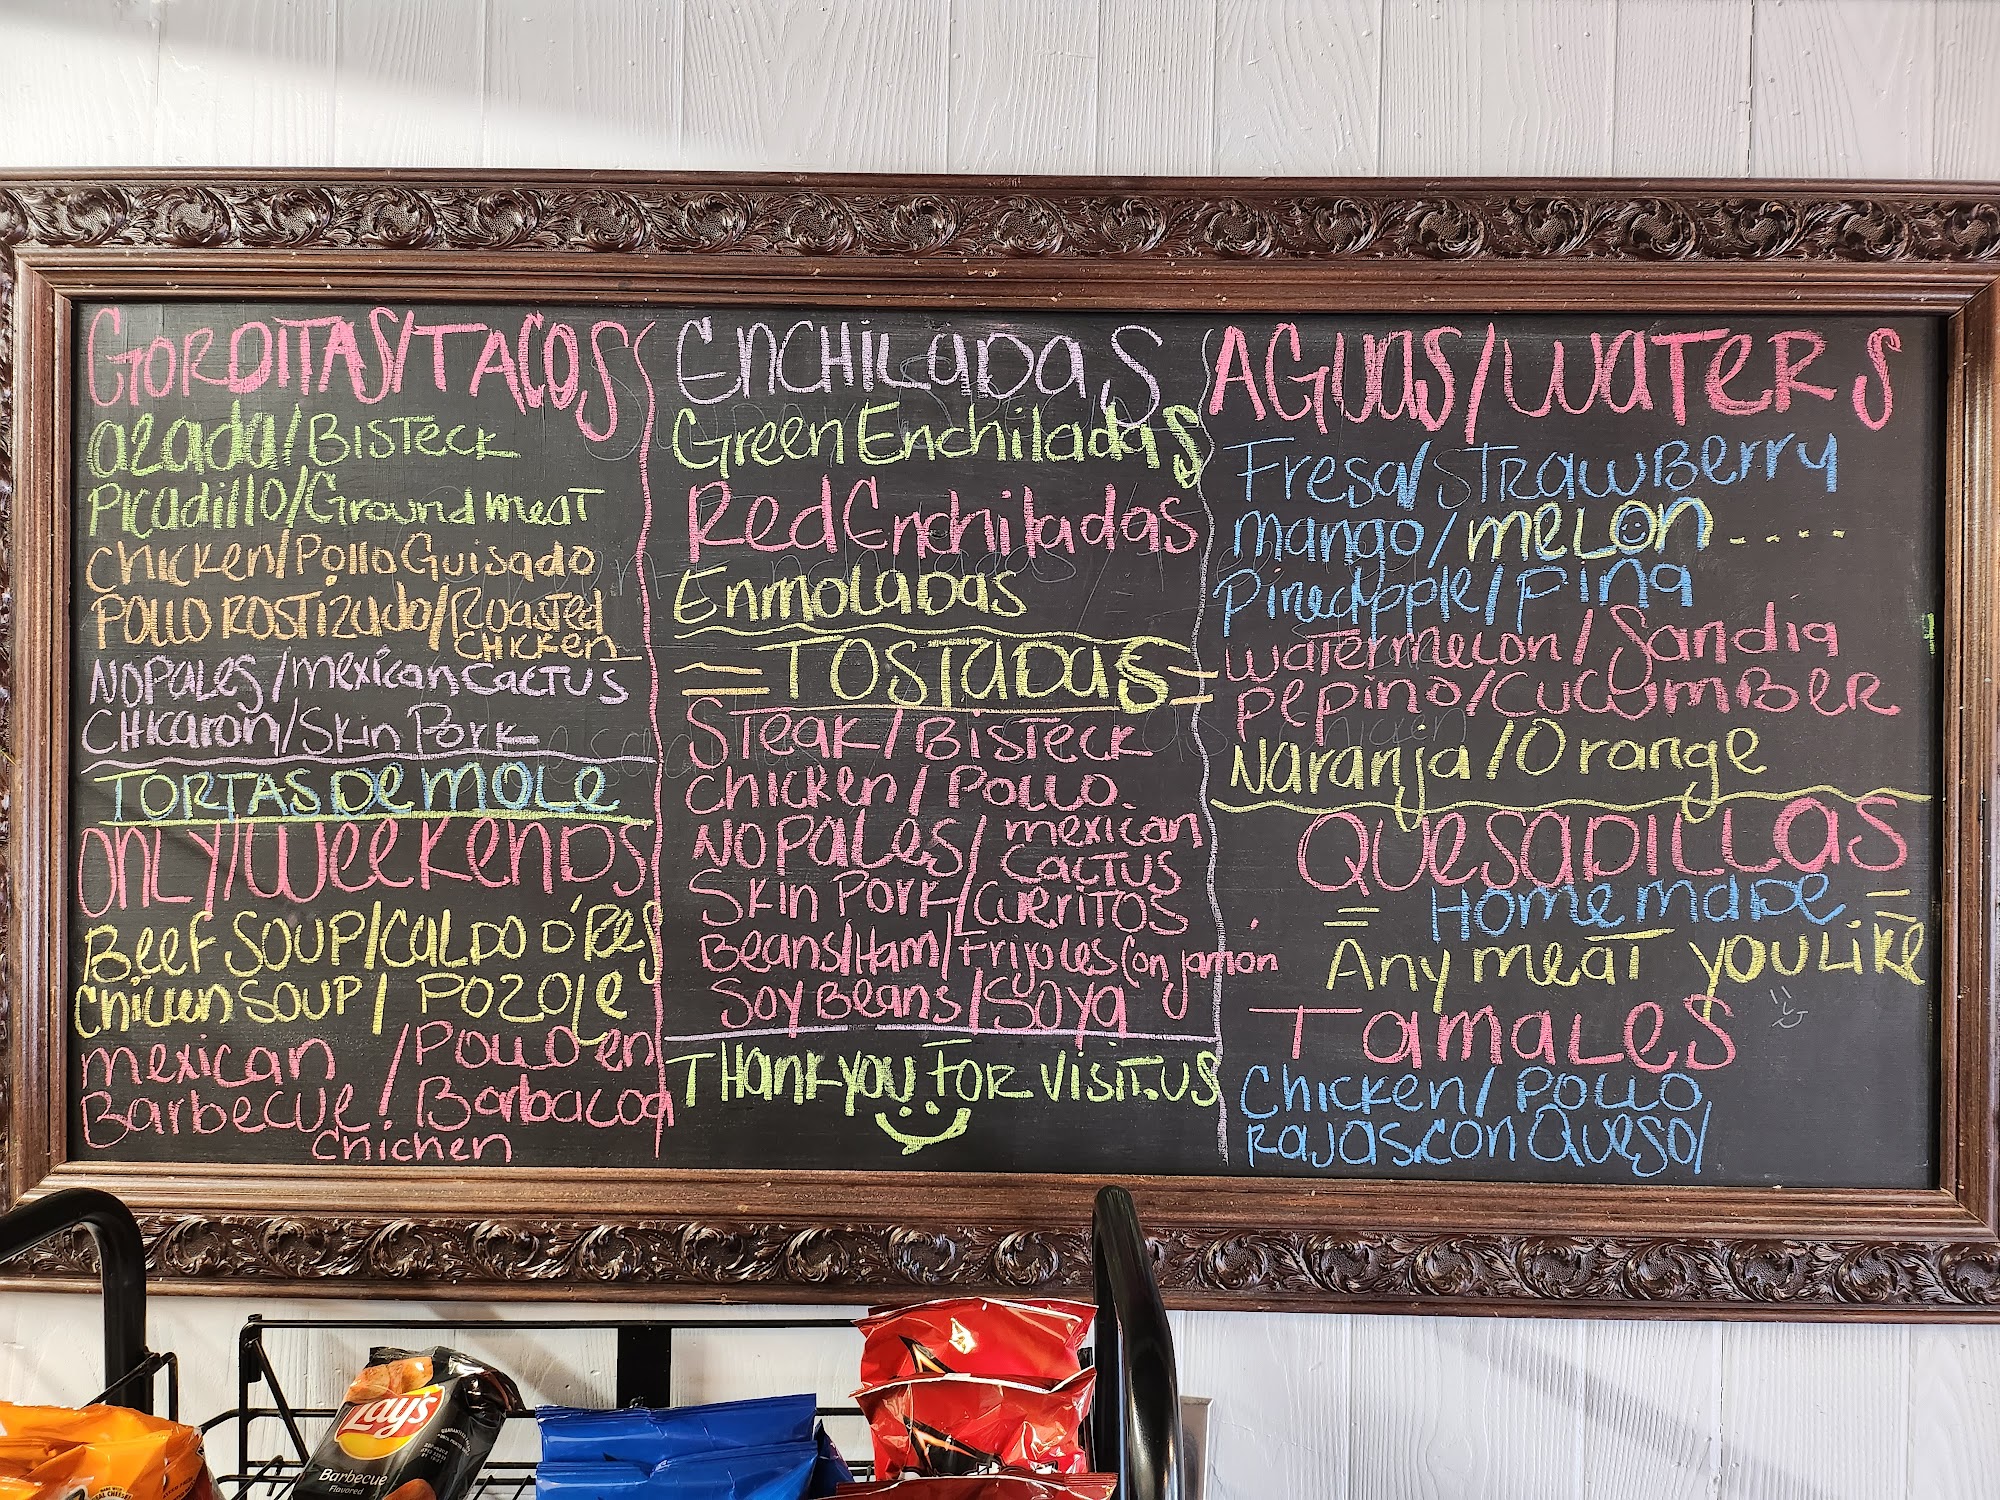 GORDITAS/TACOS
azada/BISTECK
Picadillo/Ground meat
chicken/Pollo Guisado
POLLO ROSTIZUdo/Roasted
CHICKEN
NOPALES/mexican CACTUS
CHICARON/Skin Pork
TORTAS De MOLE
ONLY/WeeKENDS
Beef SOUP/CALDO D'Res
Chicken SOUP/POZOLE
mexican/Pollo en
Barbecue! Barbacoa
Chichen
ENCHILADAS
Green Enchiladas
Red Enchiladas
ENMOLADAS
TOSTADAS
STeak/BISTeck
Chicken/Pollo.
NOPALES/mexican
CACTUS
Skin Pork/Cueritos
Beans/Ham/Frijoles Con jamón
Soy Beans/Soya
THank you FOR VISIT.US
AGUAS/WATERS
Fresa/STRAWBerry
mango/meLON....
Pineapple/Pina
WATermelon/Sandia
pepino/CUCUMBER
Naranja/Orange
QUeSADILLAS
Home made
Any meaT you Like
TamaLeS
Chicken/Pollo
RAJAS.CON QUeSO/
Lay's
Barbecue
Flavored